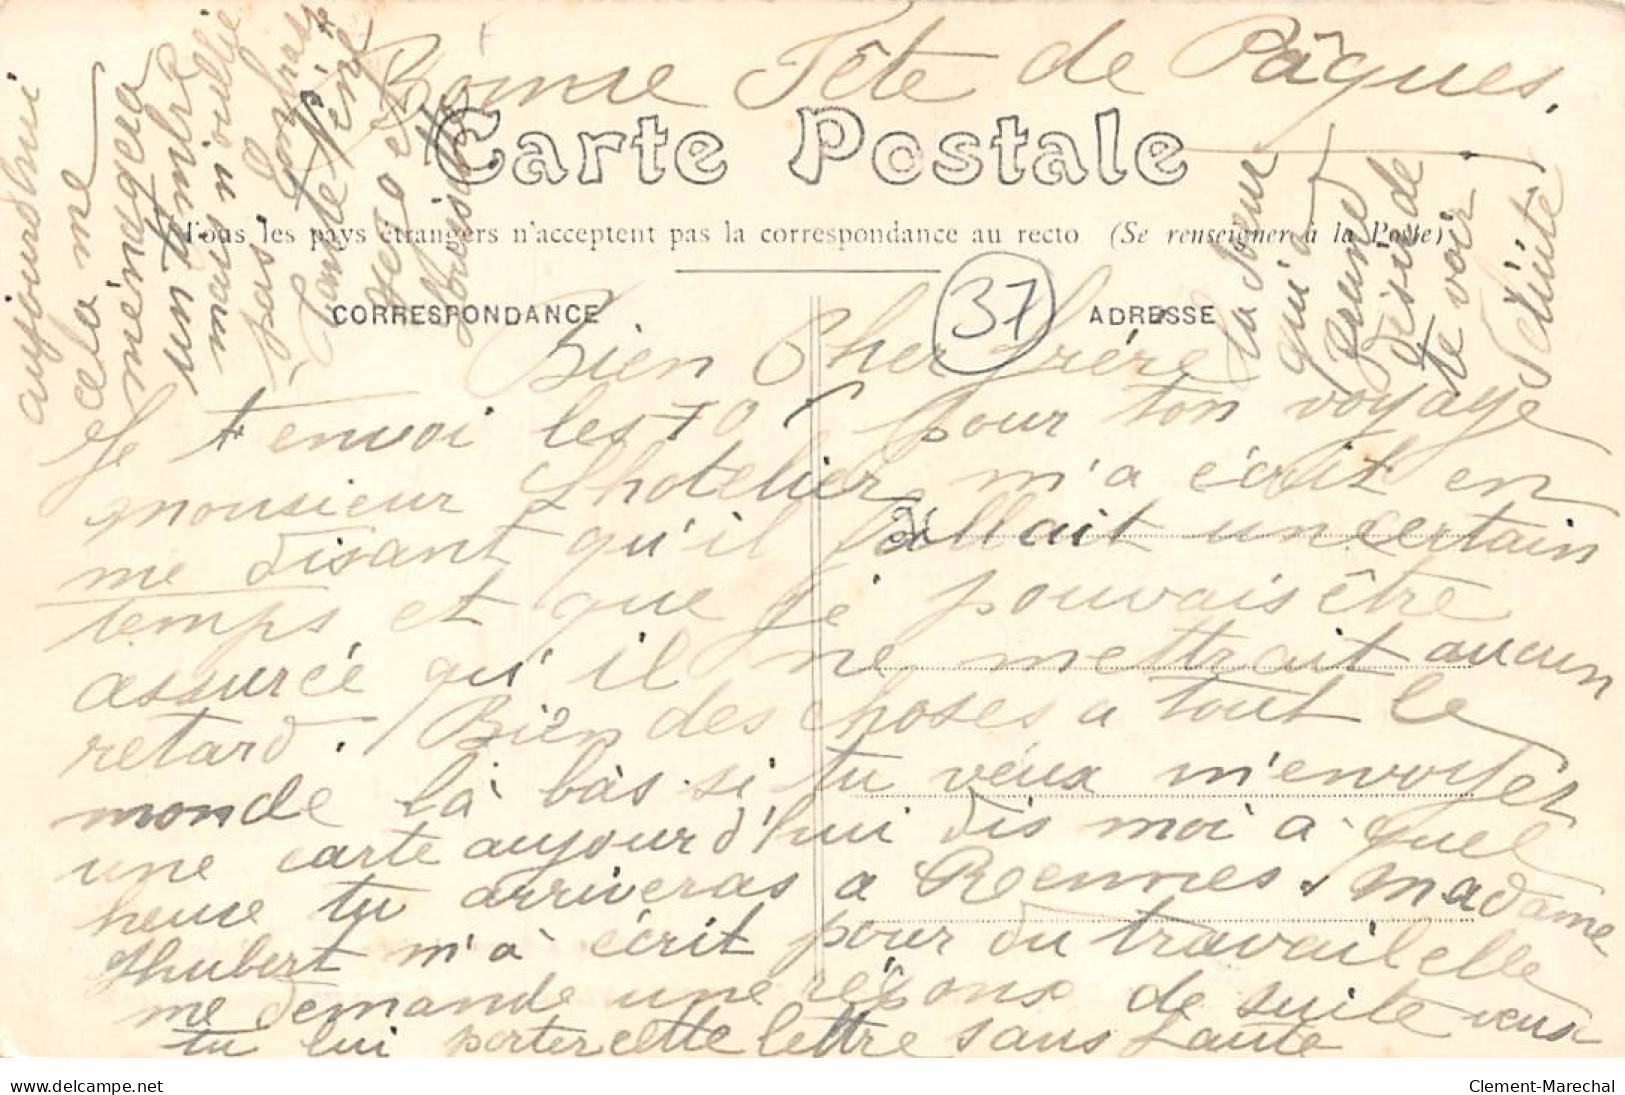 Bonne Fête de Pâques.
Carte Postale
Tous les pays étrangers n'acceptent pas la correspondance au recto (Se renseigner à la Poste)
CORRESPONDANCE
37
ADRESSE
Bien Cher frère
Je t'envoi les 10 f pour ton voyage
monsieur Lhotelier m'a écrit en
me disant qu'il fallait un certain
temps et que je pouvais être
assurée qu'il ne mettrait aucun
retard. Bien des choses a tout le
monde là bas si tu veux m'envoyer
une carte aujourd'hui dis moi a quel
heure tu arriveras a Rennes. Madame
Hubert m'à écrit pour du travail elle
me demande une réponse de suite veux
tu lui porter cette lettre sans faute
aujourd'hui
cela me
ménagera
un timbre
mais n'oublie
pas
Tante
et
Louis
ta Soeur
qui
pense
de
te voir